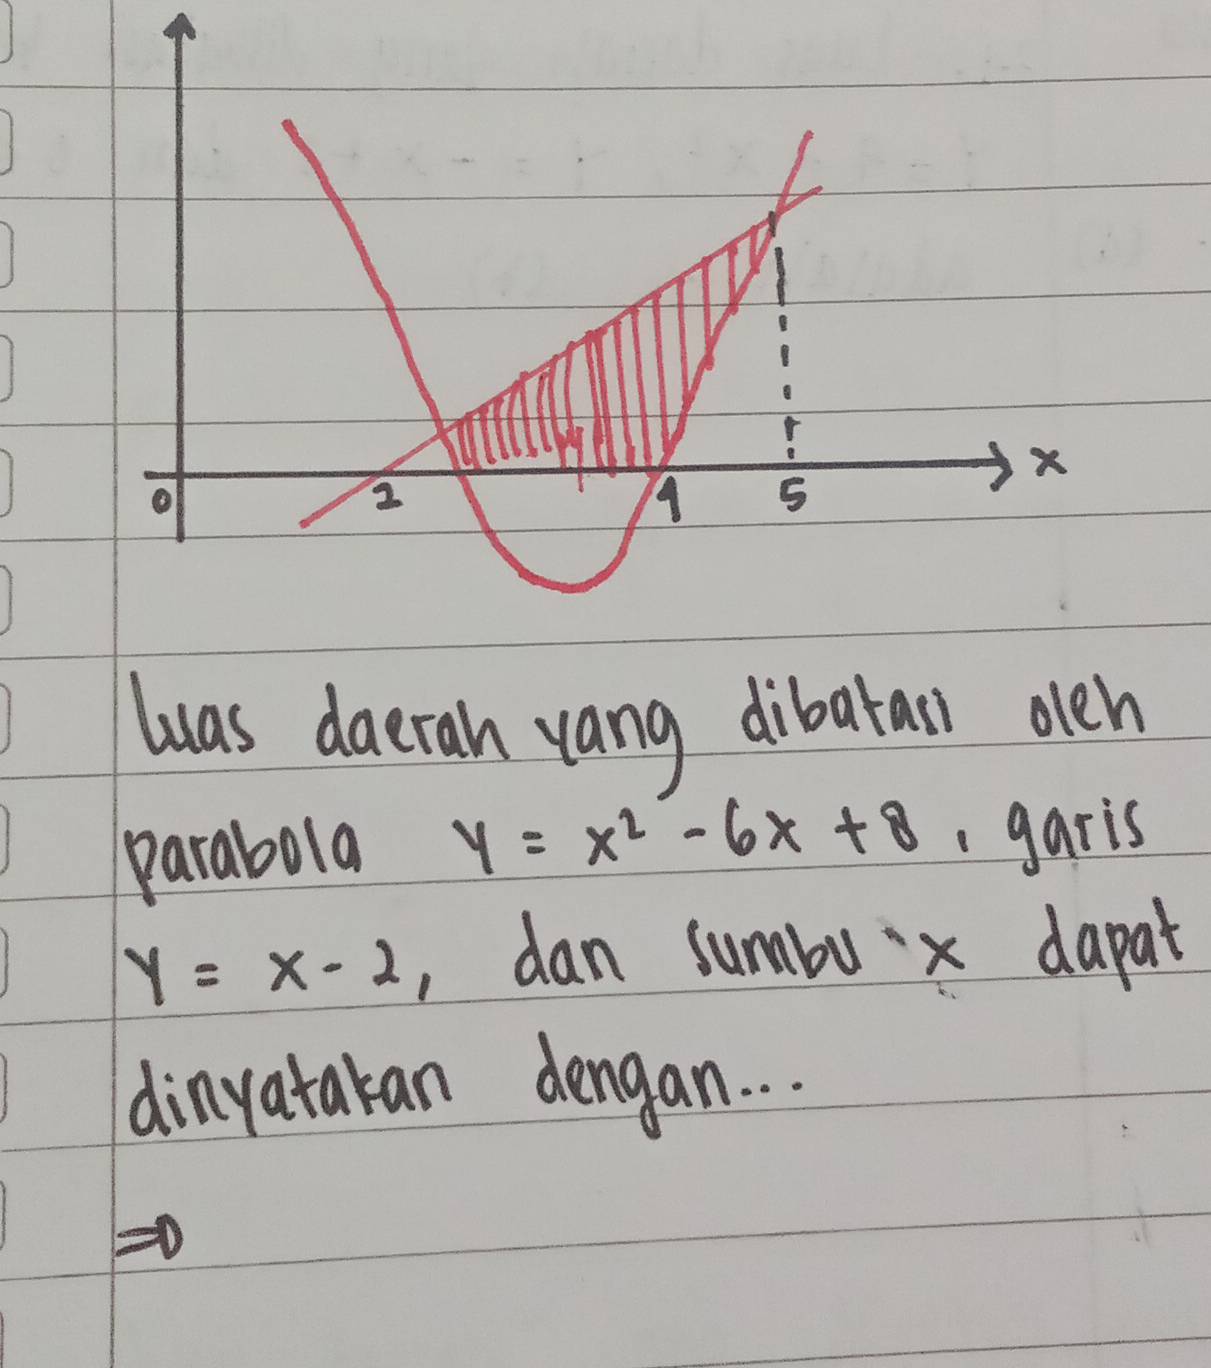 x
0 2 4 5
luas daerah yang dibatasi oleh
parabola y = x² - 6x + 8, garis
y = x - 2, dan sumbu x dapat
dinyatakan dengan...
⇒